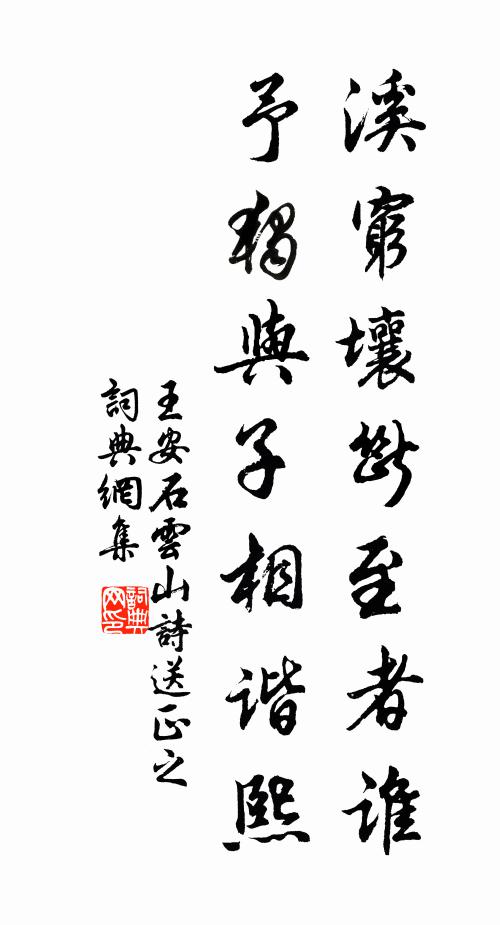 溪窮壤斷至者誰
予獨與子相谐熙
王安石雲山詩送正之
詞典網集
詞典网印